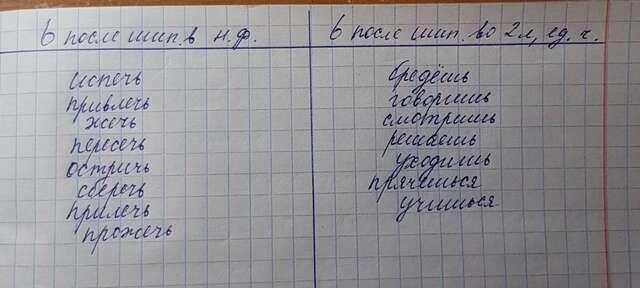 ь после шип. в н.ф.
испечь
привлечь
жечь
пересечь
остричь
сберечь
прилечь
прожечь
ь после шип. во 2 л., ед. ч.
бредёшь
говоришь
смотришь
решаешь
уходишь
прячешься
учишься